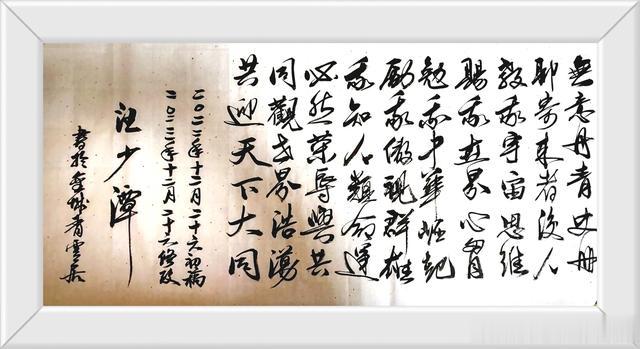 無意丹青史册
聊寄来者後人
教我宇宙思维
賜我世界心胸
勉我中華崛起
勵我傲視群雄
我知人類命運
必然榮辱與共
同觀世界浩蕩
共迎天下大同
二〇二二年十二月二十六初稿
二〇二三年十二月二十六修改
汪少潭
書於金城青雲居